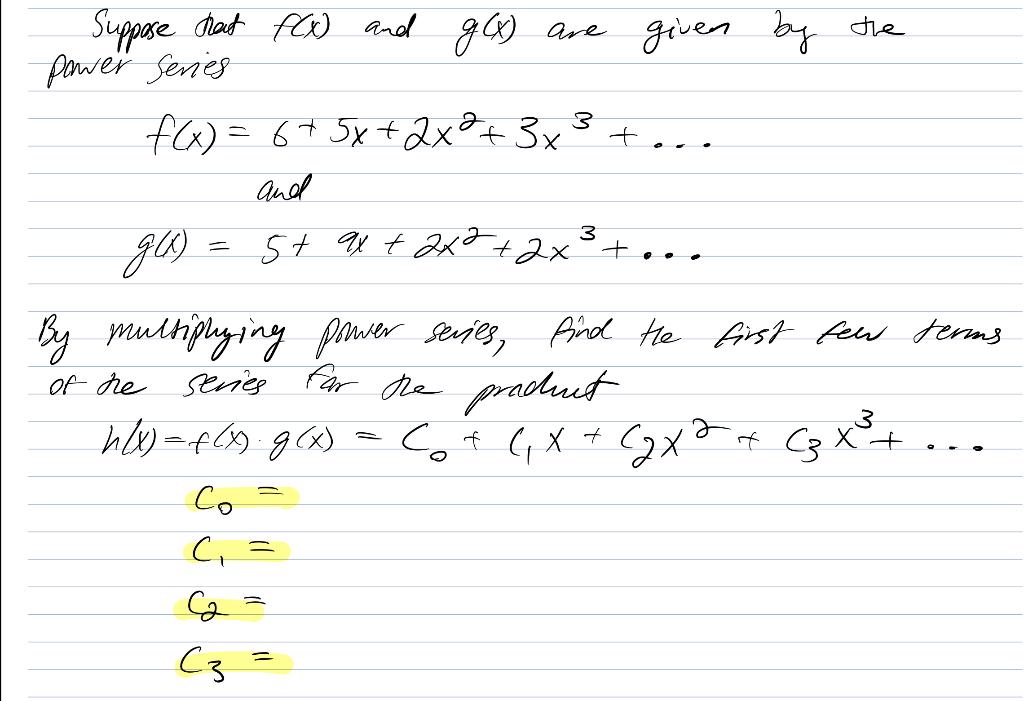 Suppose that f(x) and g(x) are given by the
power series
f(x) = 6 + 5x + 2x² + 3x³ + ...
and
g(x) = 5 + 9x + 2x² + 2x³ + ...
By multiplying power series, find the first few terms
of the series for the product
h(x) = f(x) · g(x) = C₀ + C₁x + C₂x² + C₃x³ + ...
C₀ =
C₁ =
C₂ =
C₃ =